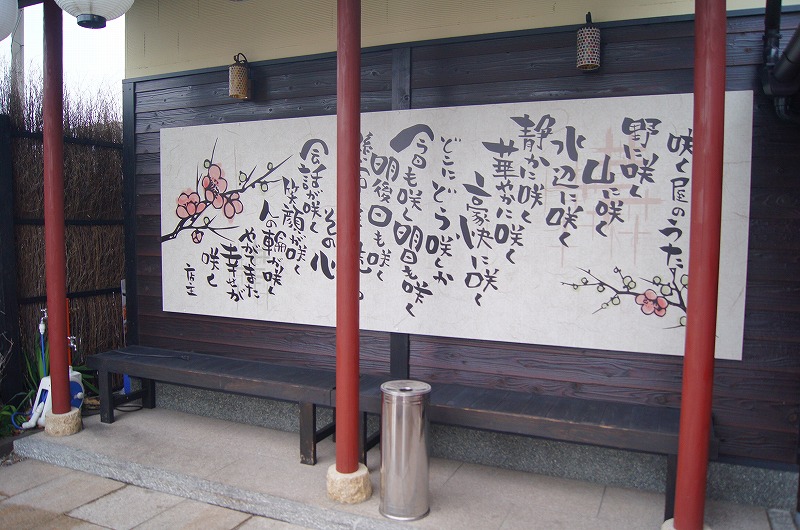 咲く屋のうた
野に咲く
山に咲く
水辺に咲く
静かに咲く
華やかに咲く
豪快に咲く
どこにどう咲くか
今日も咲く明日も咲く
明後日も咲く
その心
会話が咲く
笑顔が咲く
人の輪が咲く
やがてまた
幸せが
咲く
店主